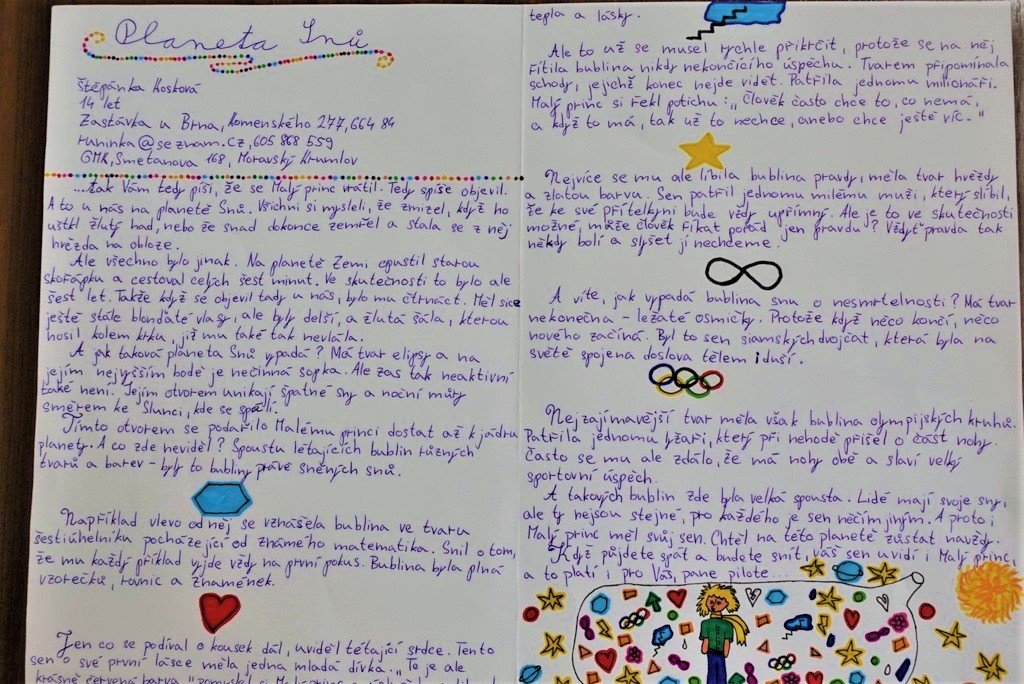 Planeta Snů
Štěpánka Kosková
14 let
Zastávka u Brna, Komenského 277, 664 84
runinka@seznam.cz, 605 868 559
GMK, Smetanova 168, Moravský Krumlov
...tak Vám tedy píši, že se Malý princ vrátil. Tedy spíše objevil.
A to u nás na planetě Snů. Všichni si mysleli, že zmizel, když ho
uštkl žlutý had, nebo že snad dokonce zemřel a stala se z něj
hvězda na obloze.
Ale všechno bylo jinak. Na planetě Zemi opustil starou
skořápku a cestoval celých šest minut. Ve skutečnosti to bylo ale
šest let. Takže když se objevil tady u nás, bylo mu čtrnáct. Měl sice
ještě stále blonďaté vlasy, ale byly delší, a žlutá šála, kterou
nosil kolem krku, již mu také tak nevlála.
A jak taková planeta Snů vypadá? Má tvar elipsy a na
jejím nejvyšším bodě je nečinná sopka. Ale zas tak neaktivní
také není. Jejím otvorem unikají špatné sny a noční můry
směrem ke Slunci, kde se spálí.
Tímto otvorem se podařilo Malému princi dostat až k jádru
planety. A co zde neviděl? Spoustu létajících bublin různých
tvarů a barev - byly to bubliny právě sněných snů.
Například vlevo od něj se vznášela bublina ve tvaru
šestiúhelníku pocházející od známého matematika. Snil o tom,
že mu každý příklad vyjde vždy na první pokus. Bublina byla plná
vzorečků, rovnic a znamének.
Jen co se podíval o kousek dál, uviděl létající srdce. Tento
sen o své první lásce měla jedna mladá dívka. „To je ale
krásně červená barva,"
tepla a lásky.
Ale to už se musel rychle přikrčit, protože se na něj
řítila bublina nikdy nekončícího úspěchu. Tvarem připomínala
schody, jejichž konec nejde vidět. Patřila jednomu milionáři.
Malý princ si řekl potichu: „Člověk často chce to, co nemá,
a když to má, tak už to nechce, anebo chce ještě víc."
Nejvíce se mu ale líbila bublina pravdy, měla tvar hvězdy
a zlatou barvu. Sen patřil jednomu milému muži, který slíbil,
že ke své přítelkyni bude vždy upřímný. Ale je to ve skutečnosti
možné, může člověk říkat pořád jen pravdu? Vždyť pravda tak
někdy bolí a slyšet ji nechceme.
A víte, jak vypadá bublina snu o nesmrtelnosti? Má tvar
nekonečna - ležaté osmičky. Protože když něco končí, něco
nového začíná. Byl to sen siamských dvojčat, která byla na
světě spojena doslova tělem i duší.
Nejzajímavější tvar měla však bublina olympijských kruhů.
Patřila jednomu lyžaři, který při nehodě přišel o část nohy.
Často se mu ale zdálo, že má nohy obě a slaví velký
sportovní úspěch.
A takových bublin zde byla velká spousta. Lidé mají svoje sny,
ale ty nejsou stejné, pro každého je sen něčím jiným. A proto i
Malý princ měl svůj sen. Chtěl na této planetě zůstat navždy.
Když půjdete spát a budete snít, váš sen uvidí i Malý princ,
a to platí i pro Vás, pane pilote...